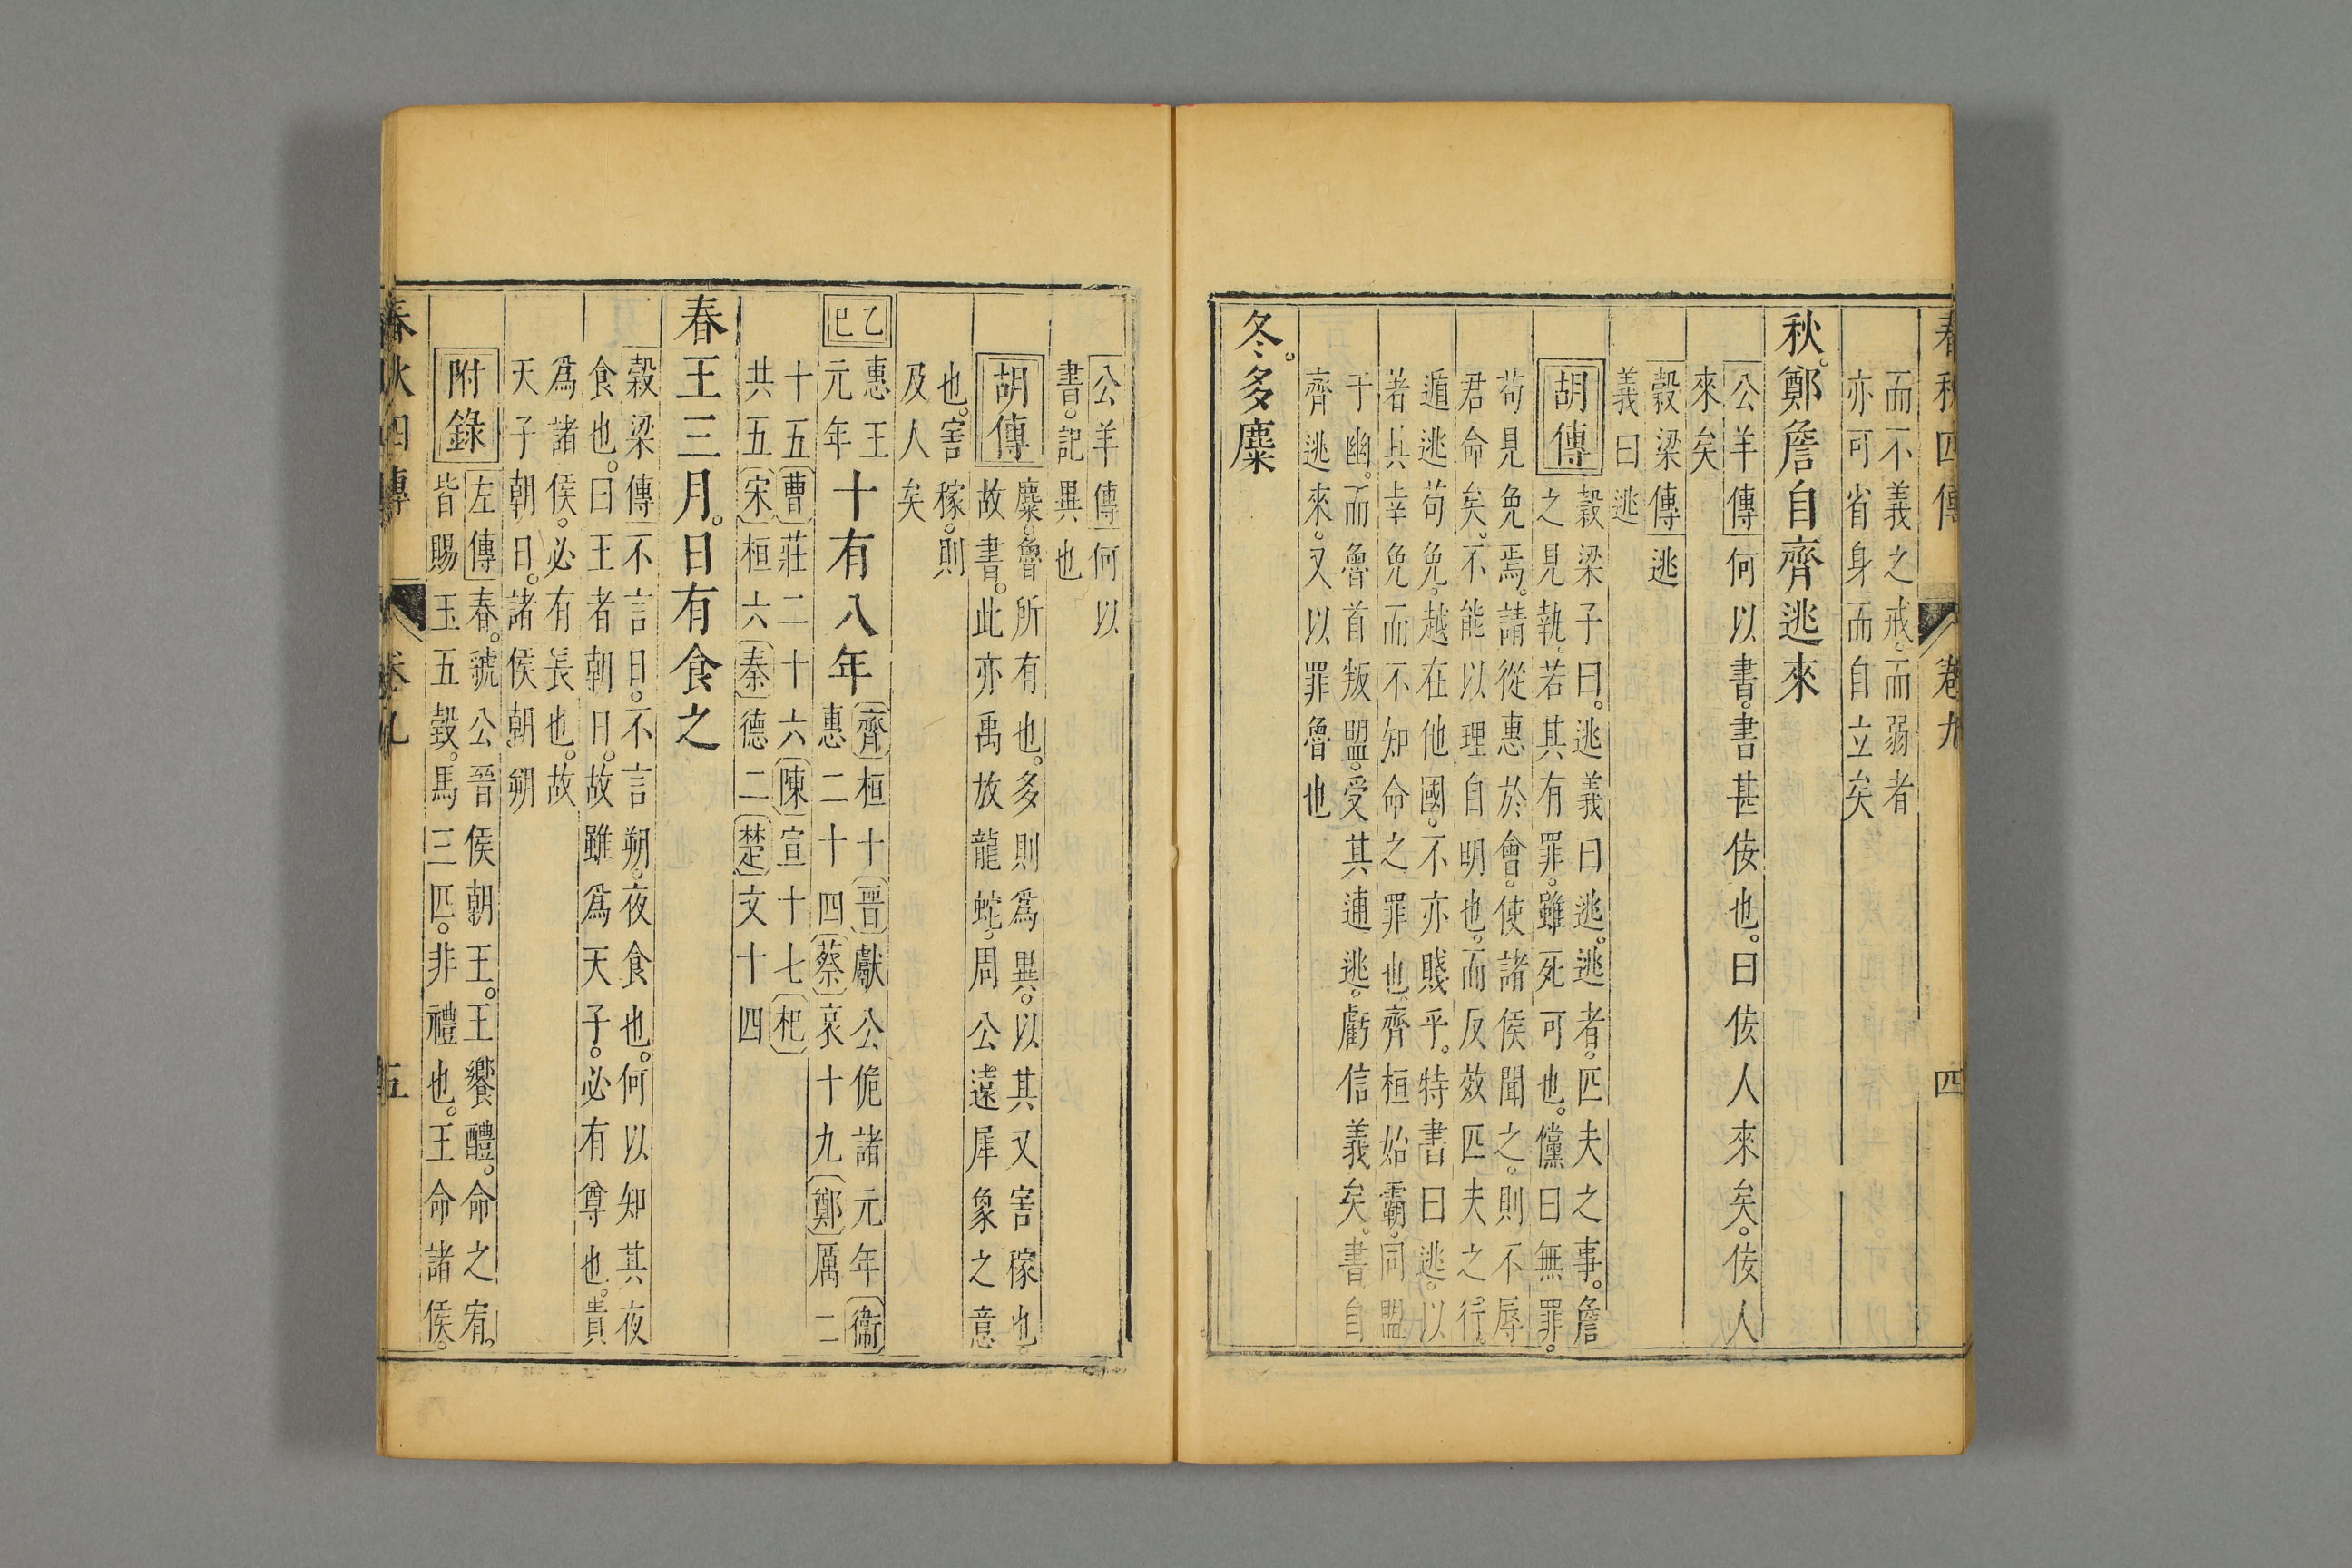 春秋四傳 卷九 四
而不義之戒。而弱者
亦可省身而自立矣
秋。鄭詹自齊逃來
公羊傳何以書。書甚佞也。曰佞人來矣。佞人
來矣
穀梁傳逃
義曰逃
胡傳
穀梁子曰。逃義曰逃。逃者。匹夫之事。詹
之見執。若其有罪。雖死可也。儻曰無罪。
苟見免焉。請從惠於會。使諸侯聞之。則不辱
君命矣。不能以理自明也。而反效匹夫之行。
遁逃苟免。越在他國。不亦賤乎。特書曰逃。以
著其幸免而不知命之罪也。齊桓始霸。同盟
于幽。而魯首叛盟。受其逋逃。虧信義矣。書自
齊逃來。又以罪魯也
冬。多麋
公羊傳何以
書。記異也
胡傳
麋。魯所有也。多則爲異。以其又害稼也。
故書。此亦禹放龍蛇。周公遠犀象之意
也。害稼。則
及人矣
乙巳
惠王
元年
十有八年
齊桓十晉獻公佹諸元年衞
惠二十四蔡哀十九鄭厲二
十五曹莊二十六陳宣十七杞
共五宋桓六秦德二楚文十四
春王三月。日有食之
穀梁傳不言日。不言朔。夜食也。何以知其夜
食也。曰王者朝日。故雖爲天子。必有尊也。貴
爲諸侯。必有長也。故
天子朝日。諸侯朝朔
附錄
左傳春。虢公晉侯朝王。王饗醴。命之宥。
皆賜玉五瑴。馬三匹。非禮也。王命諸侯。
春秋四傳 卷九 五